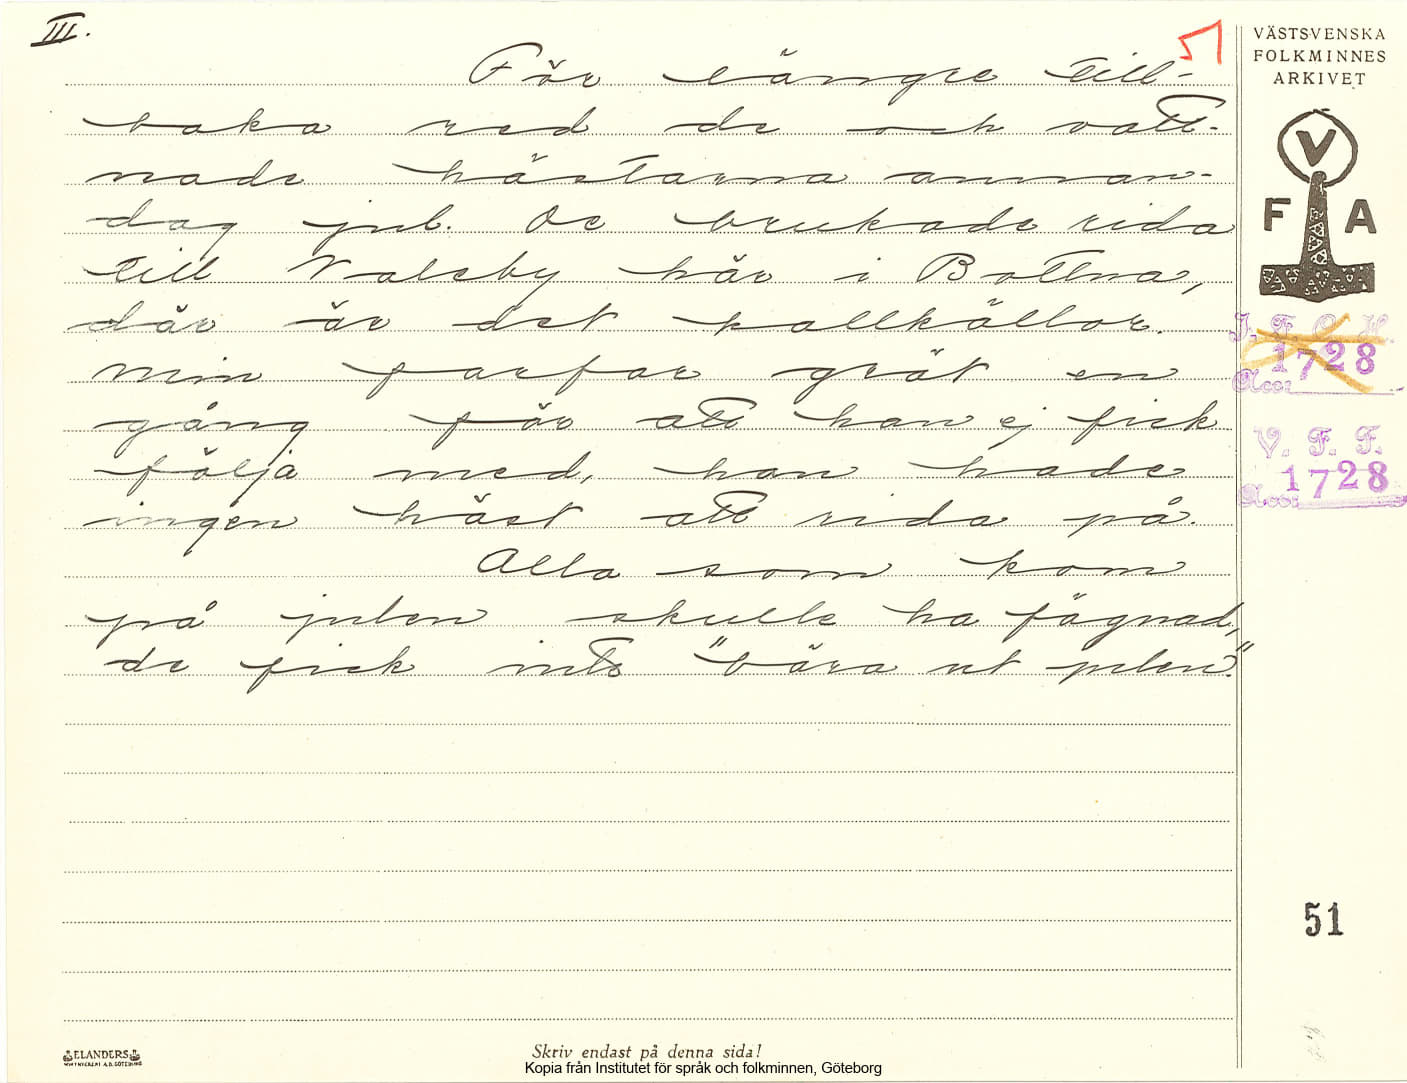 III.
För längre till-
baka red de och vatt-
nade hästarna annan-
dag jul. De brukade rida
till Valeby här i Bottna,
där är det kallkällor.
Min farfar grät en
gång för att han ej fick
följa med, han hade
ingen häst att rida på.
Alla som kom
på julen skulle ha fägnad,
de fick inte "bära ut julen".
VÄSTSVENSKA
FOLKMINNES
ARKIVET
V
F A
I. F. O. H.
1728
Acc:
V. F. F.
1728
Acc:
51
ELANDERS
Skriv endast på denna sida!
Kopia från Institutet för språk och folkminnen, Göteborg